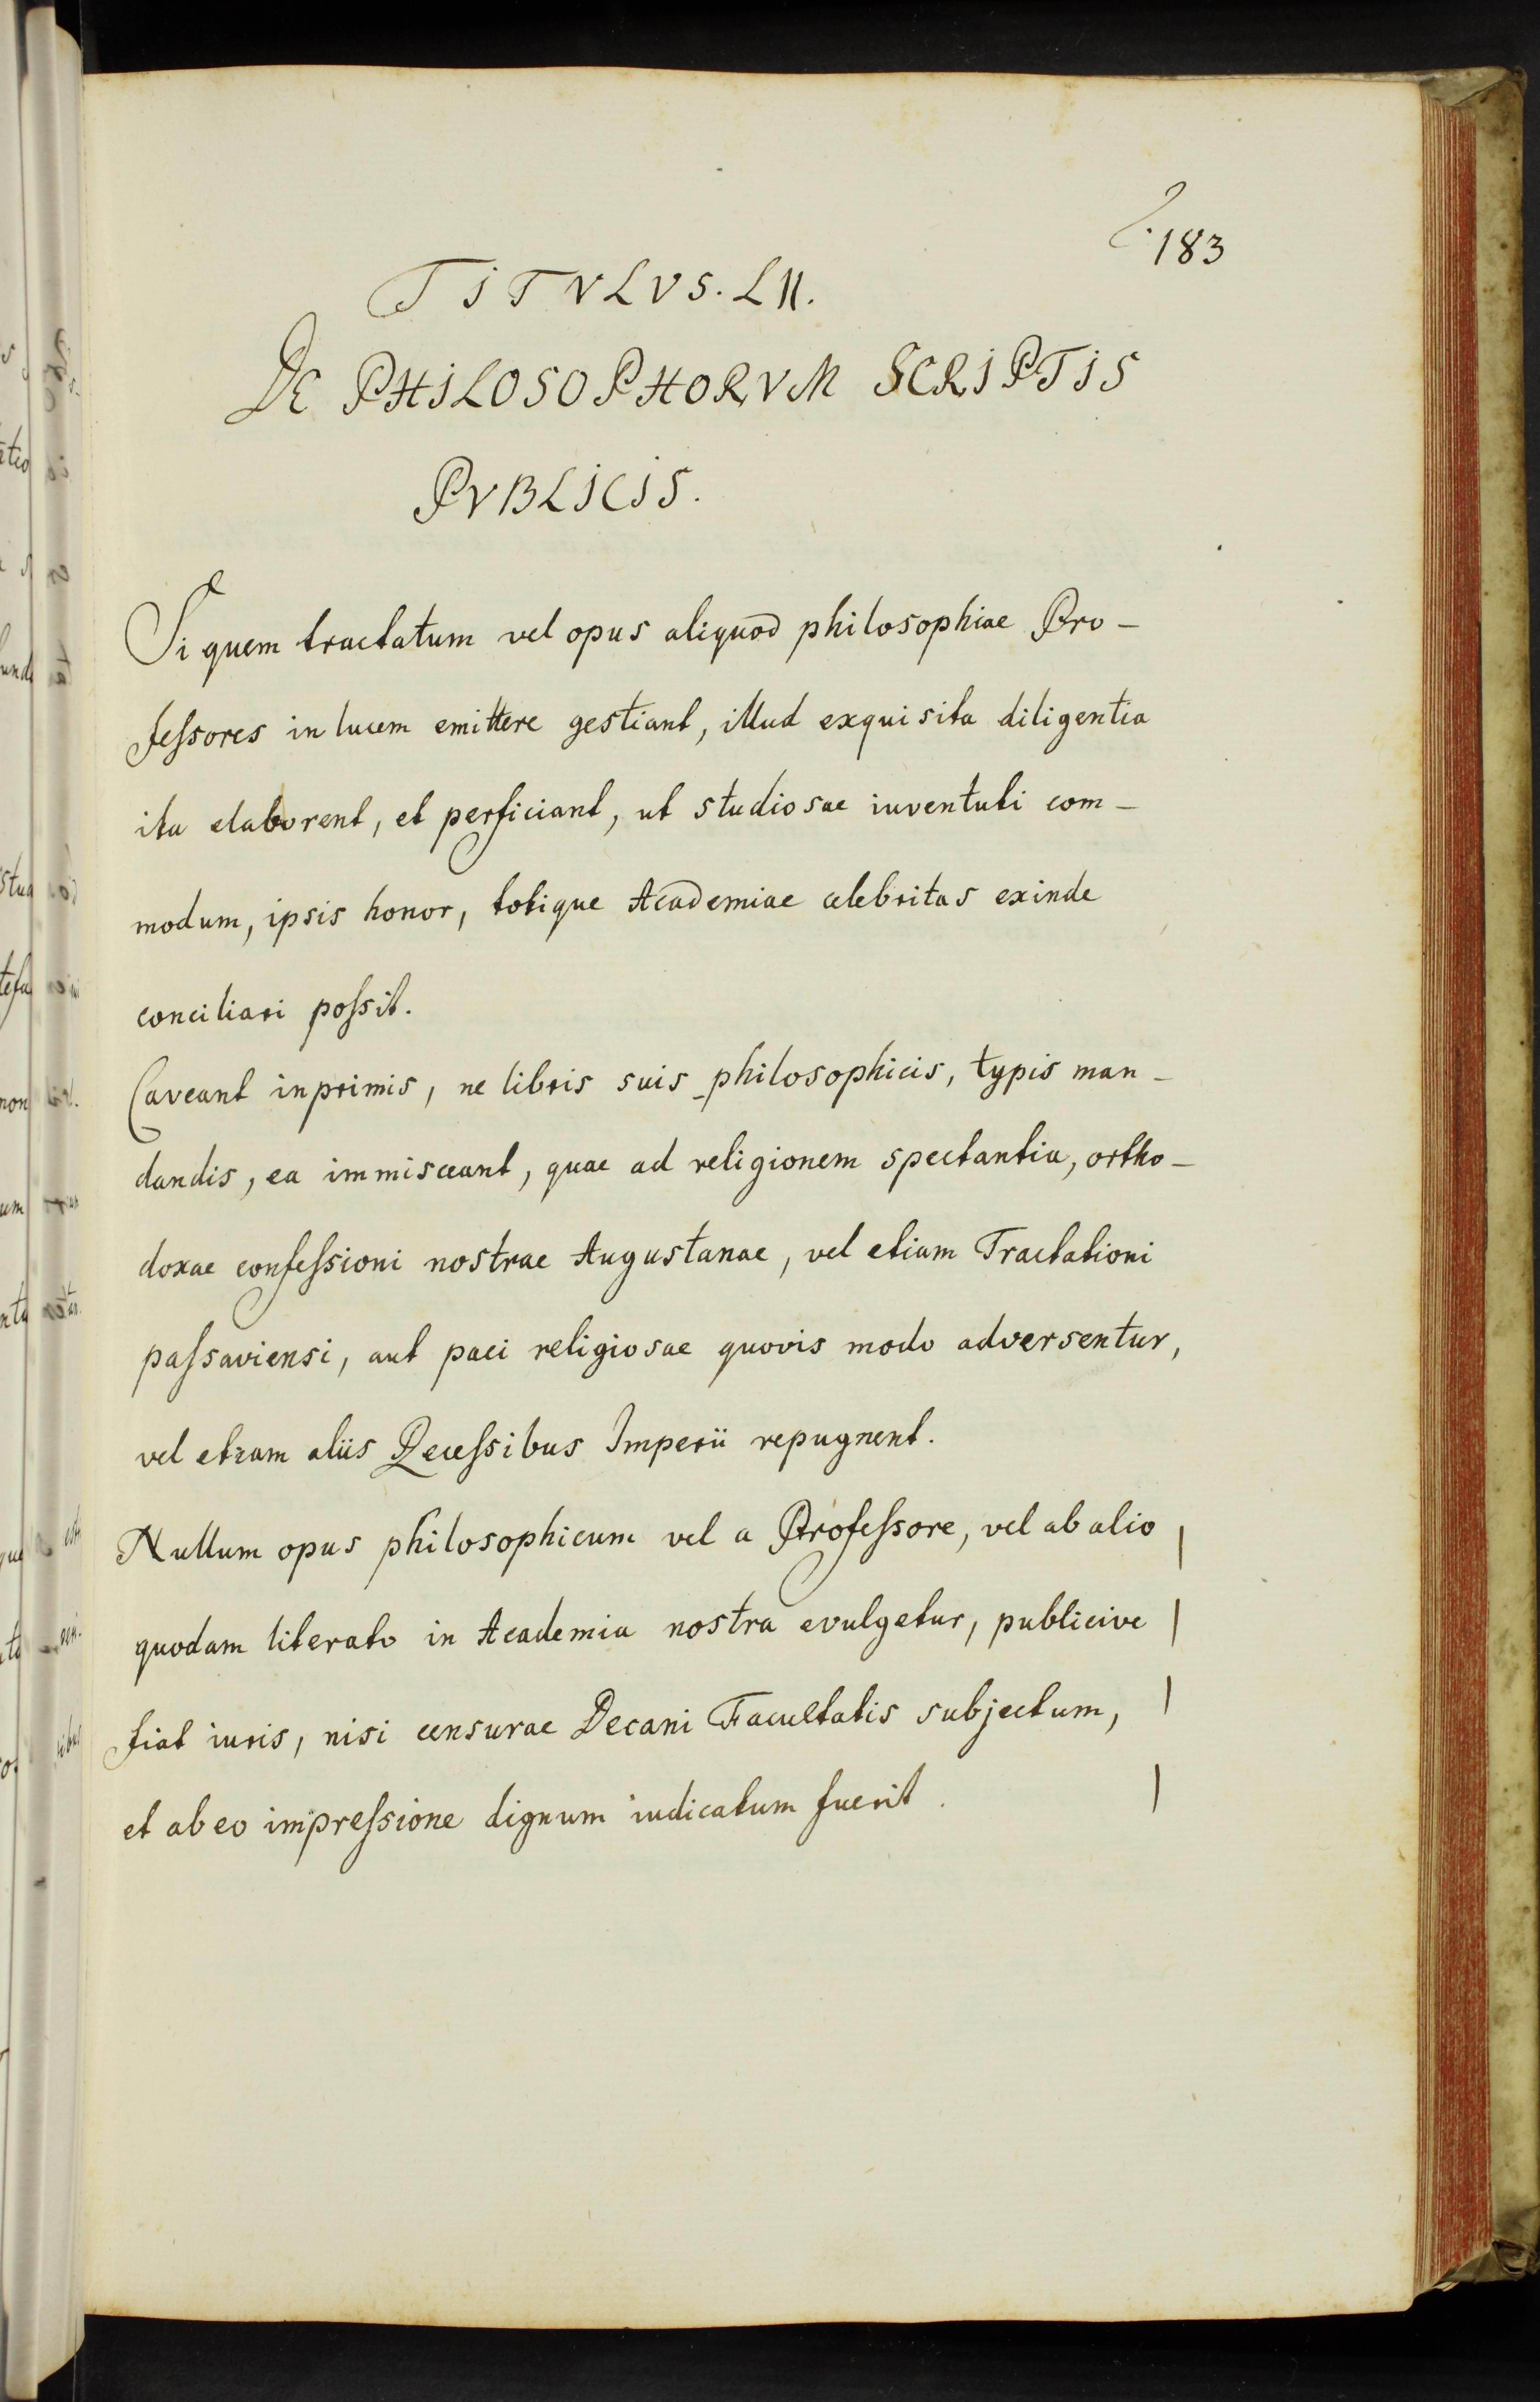 183
TITVLVS. LII.
DE PHILOSOPHORVM SCRIPTIS
PVBLICIS.
Si quem tractatum vel opus aliquod philosophiae Pro-
feſsores in lucem emittere gestiant, illud exquisita diligentia
ita elaborent, et perficiant, ut studiosae iuventuti com-
modum, ipsis honor, totique Academiae celebritas exinde
conciliari poſsit.
Caveant inprimis, ne libris suis philosophicis, typis man-
dandis, ea immisceant, quae ad religionem spectantia, ortho-
doxae confeſsioni nostrae Augustanae, vel etiam Tractationi
paſsaviensi, aut paci religiosae quovis modo adversentur,
vel etiam aliis Receſsibus Imperii repugnent.
Nullum opus philosophicum vel a Profeſsore, vel ab alio
quodam literato in Academia nostra evulgetur, publicive
fiat iuris, nisi censurae Decani Facultatis subjectum,
et ab eo impreſsione dignum iudicatum fuerit.